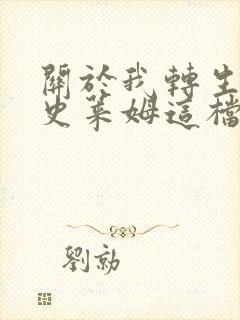 關於我轉生
史萊姆這檔
劉勍